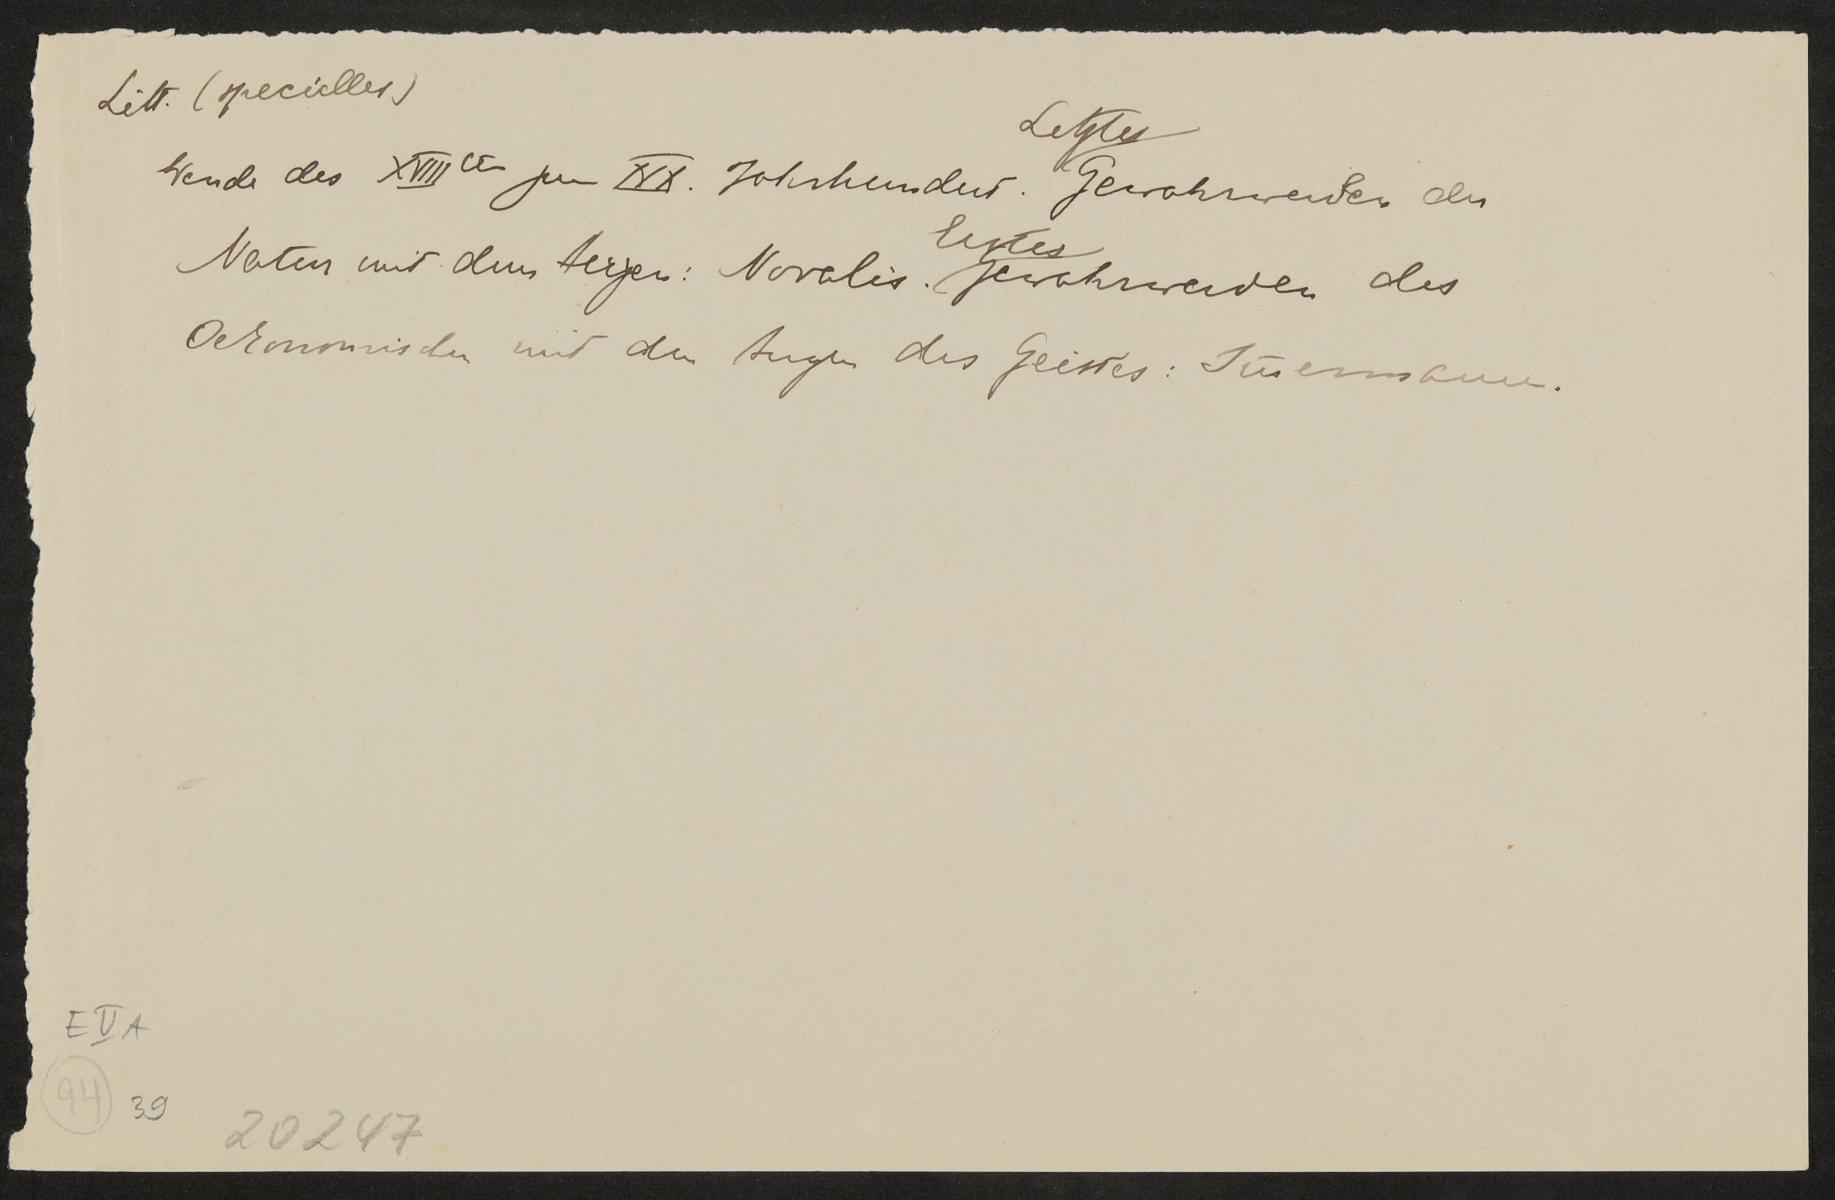 Litt. (specielles)
Letztes
Wende des XVIIIten zum XIX. Jahrhundert. Gewahrwerden der
Erstes
Natur mit dem Herzen: Novalis. Gewahrwerden des
Oekonomischen mit den Augen des Geistes:
E V A
94 39 20247